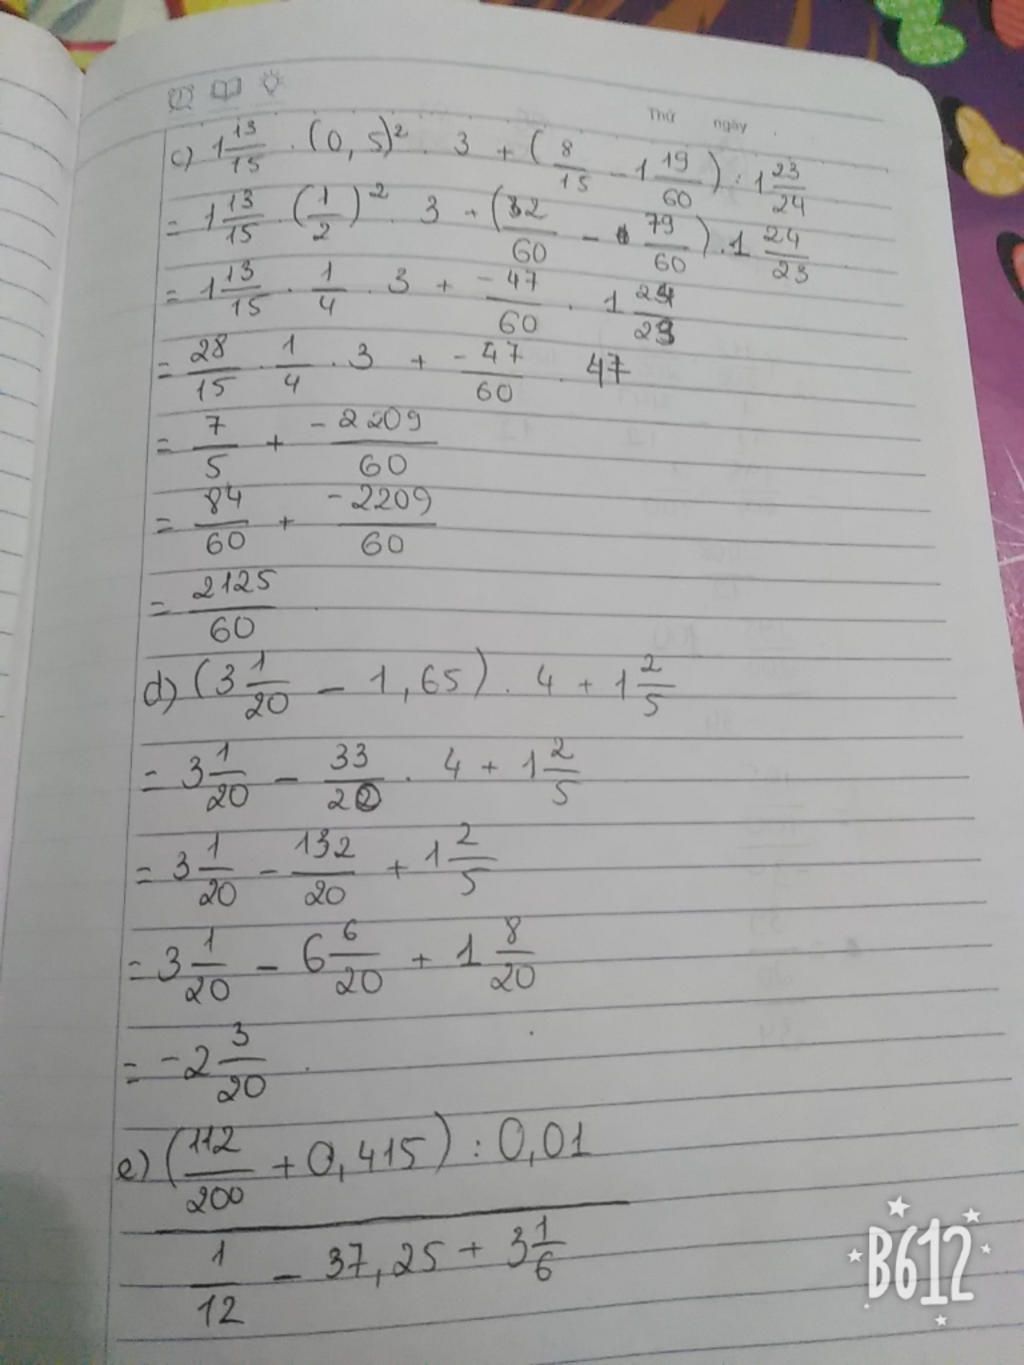 Thứ ngày
c) 1 13/15 . (0,5)² . 3 + (8/15 - 1 19/60) : 1 23/24
= 1 13/15 . (1/2)² . 3 + (32/60 - 79/60) . 1 24/23
= 1 13/15 . 1/4 . 3 + -47/60 . 1 24/23
= 28/15 . 1/4 . 3 + -47/60 . 47
= 7/5 + -2209/60
= 84/60 + -2209/60
= 2125/60
d) (3 1/20 - 1,65) . 4 + 1 2/5
= 3 1/20 - 33/20 . 4 + 1 2/5
= 3 1/20 - 132/20 + 1 2/5
= 3 1/20 - 6 6/20 + 1 8/20
= -2 3/20 .
e) (112/200 + 0,415) : 0,01
1/12 - 37,25 + 3 1/6
B612